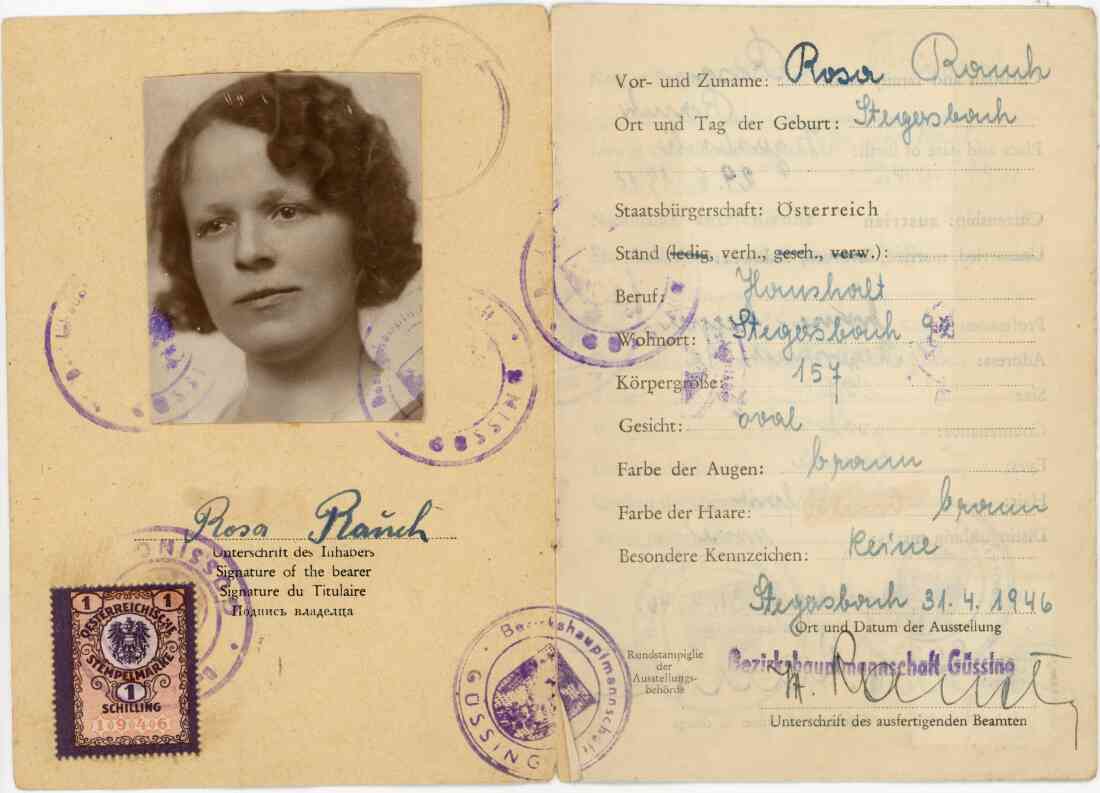 Rosa Rauch
Unterschrift des Inhabers
Signature of the bearer
Signature du Titulaire
Подпись владелца
1 1
OESTERREICHISCHE
STEMPELMARKE
1
SCHILLING
1946
Bezirkshauptmannschaft
GÜSSING
Vor- und Zuname: Rosa Rauch
Ort und Tag der Geburt: Stegasbach
Staatsbürgerschaft: Österreich
Stand (ledig, verh., gesch., verw.):
Beruf: Haushalt
Wohnort: Stegasbach 92
Körpergröße: 157
Gesicht: oval
Farbe der Augen: braun
Farbe der Haare: braun
Besondere Kennzeichen: keine
Stegasbach 31.4.1946
Ort und Datum der Ausstellung
Rundstampiglie
der
Ausstellungs-
behörde
Bezirkshauptmannschaft Güssing
Unterschrift des ausfertigenden Beamten